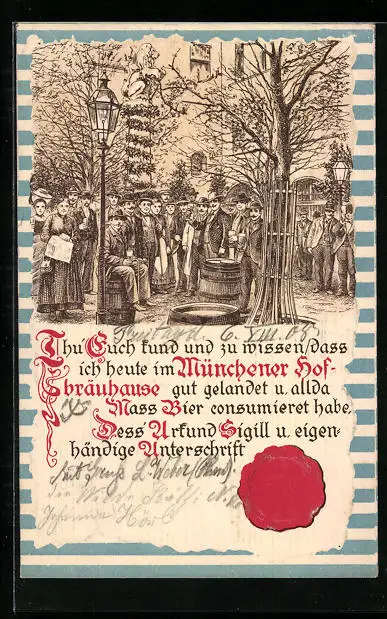 Freitag 6. VIII. 09
Thu Euch kund und zu wissen, dass
ich heute im Münchener Hof-
bräuhause gut gelandet u. allda
Mass Bier consumieret habe,
Dess Urkund Sigill u. eigen-
händige Unterschrift
Mit Gruss L. Weber
Johanna